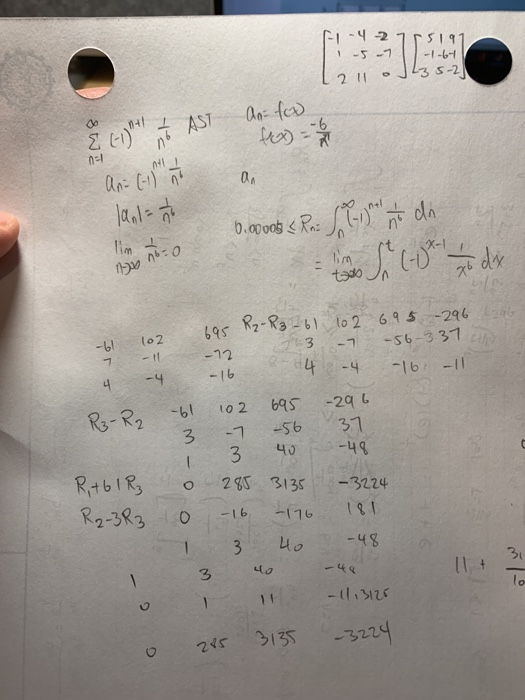 [-1 -4 -2] [5 1 9]
[1 -5 -7] [-1 -6 -1]
[2 11 0] [3 5 -2]
∞
Σ (-1)^(n+1) 1/n^6 AST an = f(x)
n=1
f(x) =
an = (-1)^(n+1) 1/n^6 an
|an| = 1/n^6
0.00005 ≤ Rn = ∫n^∞ (-1)^(n+1) 1/n^6 dn
lim n→∞ 1/n^6 = 0
= lim t→∞ ∫n^t (-1)^(x-1) 1/x^6 dx
-61 102 695 R2-R3 -61 102 695 -296
7 -11 -72 3 -7 -56 337
4 -4 -16 4 -4 -16 -11
R3-R2 -61 102 695 -296
3 -7 -56 37
1 3 40 -48
R1+61R3 0 285 3135 -3224
R2-3R3 0 -16 -176 181
1 3 40 -48
1 3 40 -48
11 + 31/10
0 1 11 -11.3125
0 285 3135 -3224